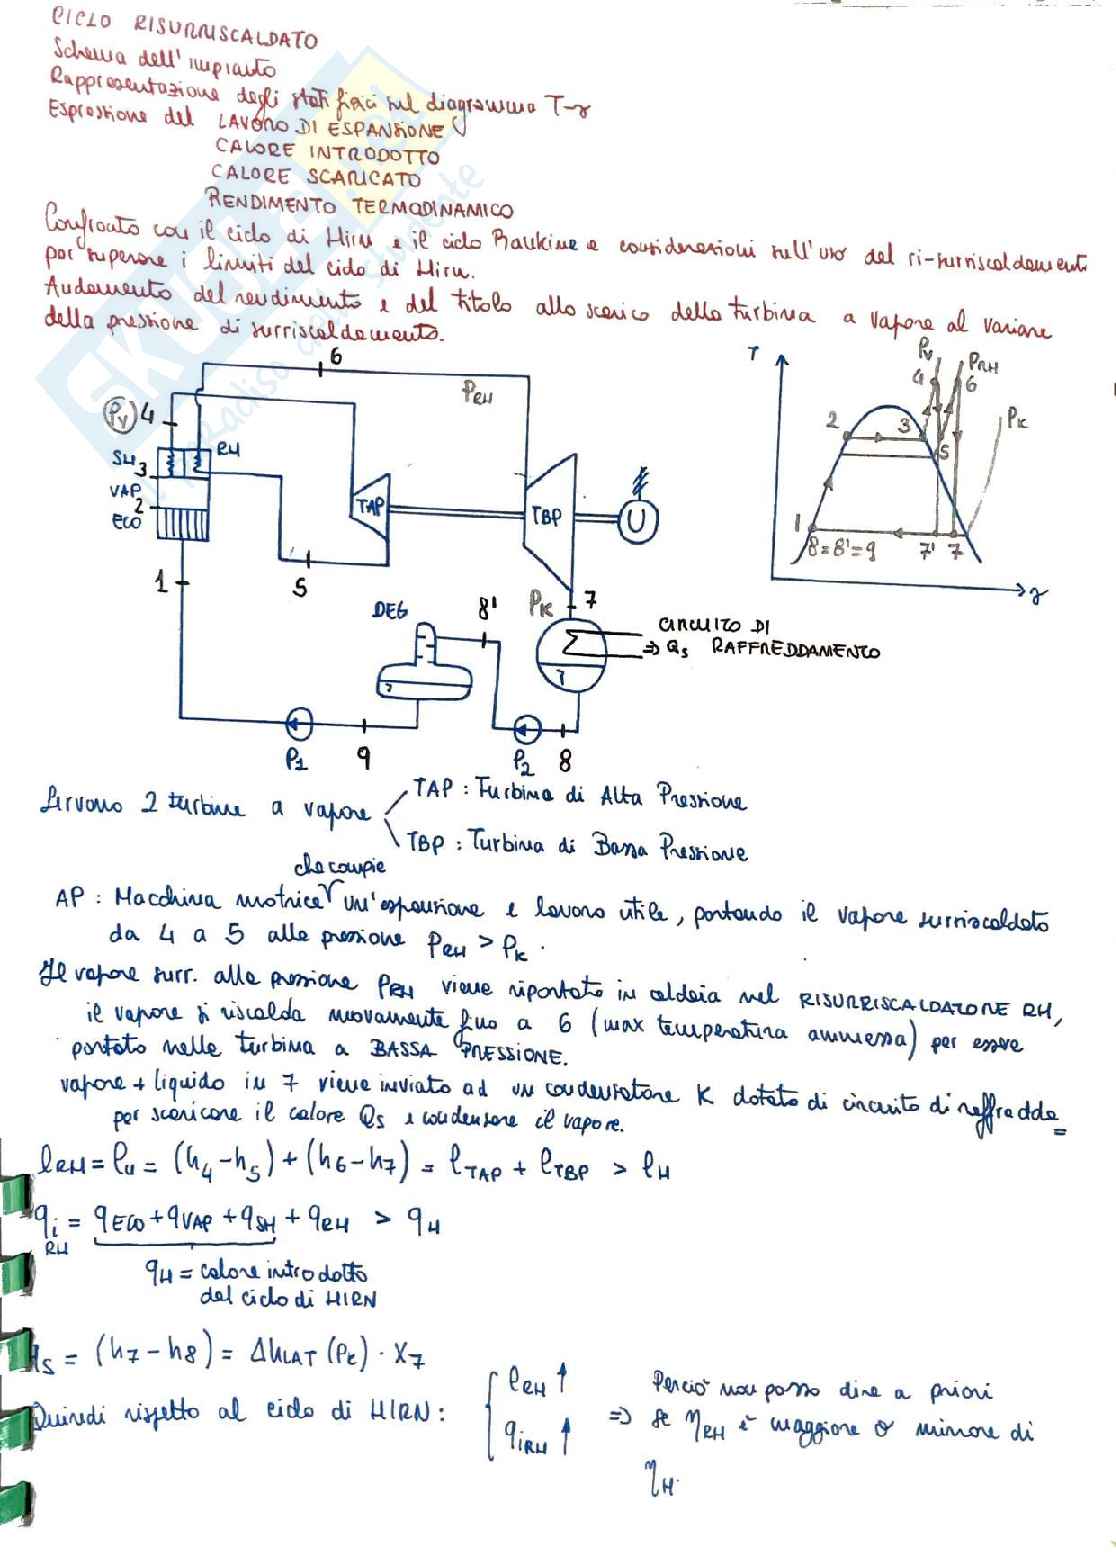 CICLO RISURRISCALDATO
Schema dell'impianto
Rappresentazione degli stati fisici sul diagramma T-s
Espressione del LAVORO DI ESPANSIONE
CALORE INTRODOTTO
CALORE SCARICATO
RENDIMENTO TERMODINAMICO
Confronto con il ciclo di Hirn e il ciclo Rankine e considerazioni sull'uso del ri-surriscaldamento
per superare i limiti del ciclo di Hirn.
Andamento del rendimento e del titolo allo scarico della turbina a vapore al variare
della pressione di surriscaldamento.
6
PRH
Pv 4
SH 3
RH
VAP 2
ECO
TAP
TBP
U
1
5
DEG
8'
PK
7
CIRCUITO DI
⇒ Qs RAFFREDDAMENTO
P1
9
P2
8
T
Pv
PRH
4
6
PK
2
3
5
1
8=8'=9
7'
7
s
Servono 2 turbine a vapore
TAP : Turbina di Alta Pressione
TBP : Turbina di Bassa Pressione
che compie
AP : Macchina motrice un'espansione e lavoro utile, portando il vapore surriscaldato
da 4 a 5 alla pressione PRH > PK.
Il vapore surr. alla pressione PRH viene riportato in caldaia nel RISURRISCALDATORE RH,
il vapore si riscalda nuovamente fino a 6 (max temperatura ammessa) per essere
portato nella turbina a BASSA PRESSIONE.
vapore + liquido in 7 viene inviato ad un condensatore K dotato di circuito di raffredda=
per scaricare il calore Qs e condensare il vapore.
lRH = lu = (h4-h5) + (h6-h7) = lTAP + lTBP > lH
qi RH = qECO + qVAP + qSH + qRH > qH
qH = calore introdotto
del ciclo di HIRN
qs = (h7-h8) = ΔhLAT (PK) · x7
Quindi rispetto al ciclo di HIRN :
lRH ↑
qiRH ↑
Perciò non posso dire a priori
⇒ se ηRH è maggiore o minore di
ηH.